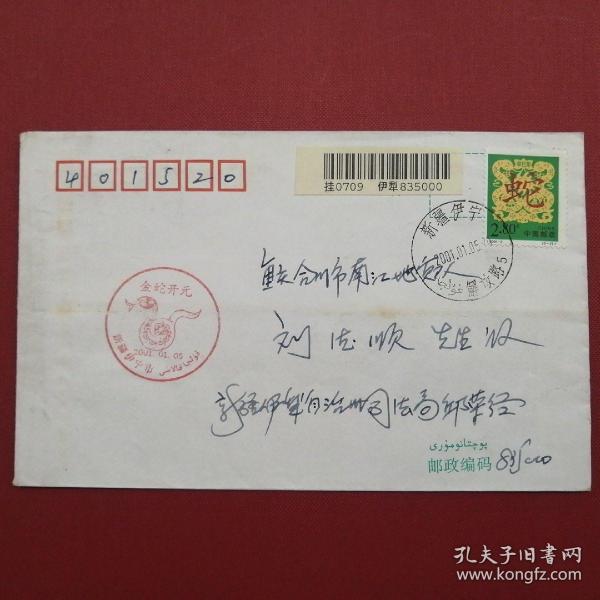 401520
挂0709 伊犁835000
蛇
2.80元
中国邮政
新疆伊宁
2001.01.05
解放路5
金蛇开元
2001.01.05
新疆伊宁市
重庆合川市南江地
刘德顺 先生收
新疆伊犁自治州司法局邹荣经
پوچتانومۇرى
邮政编码 835000
孔夫子旧书网
www.kongfz.com